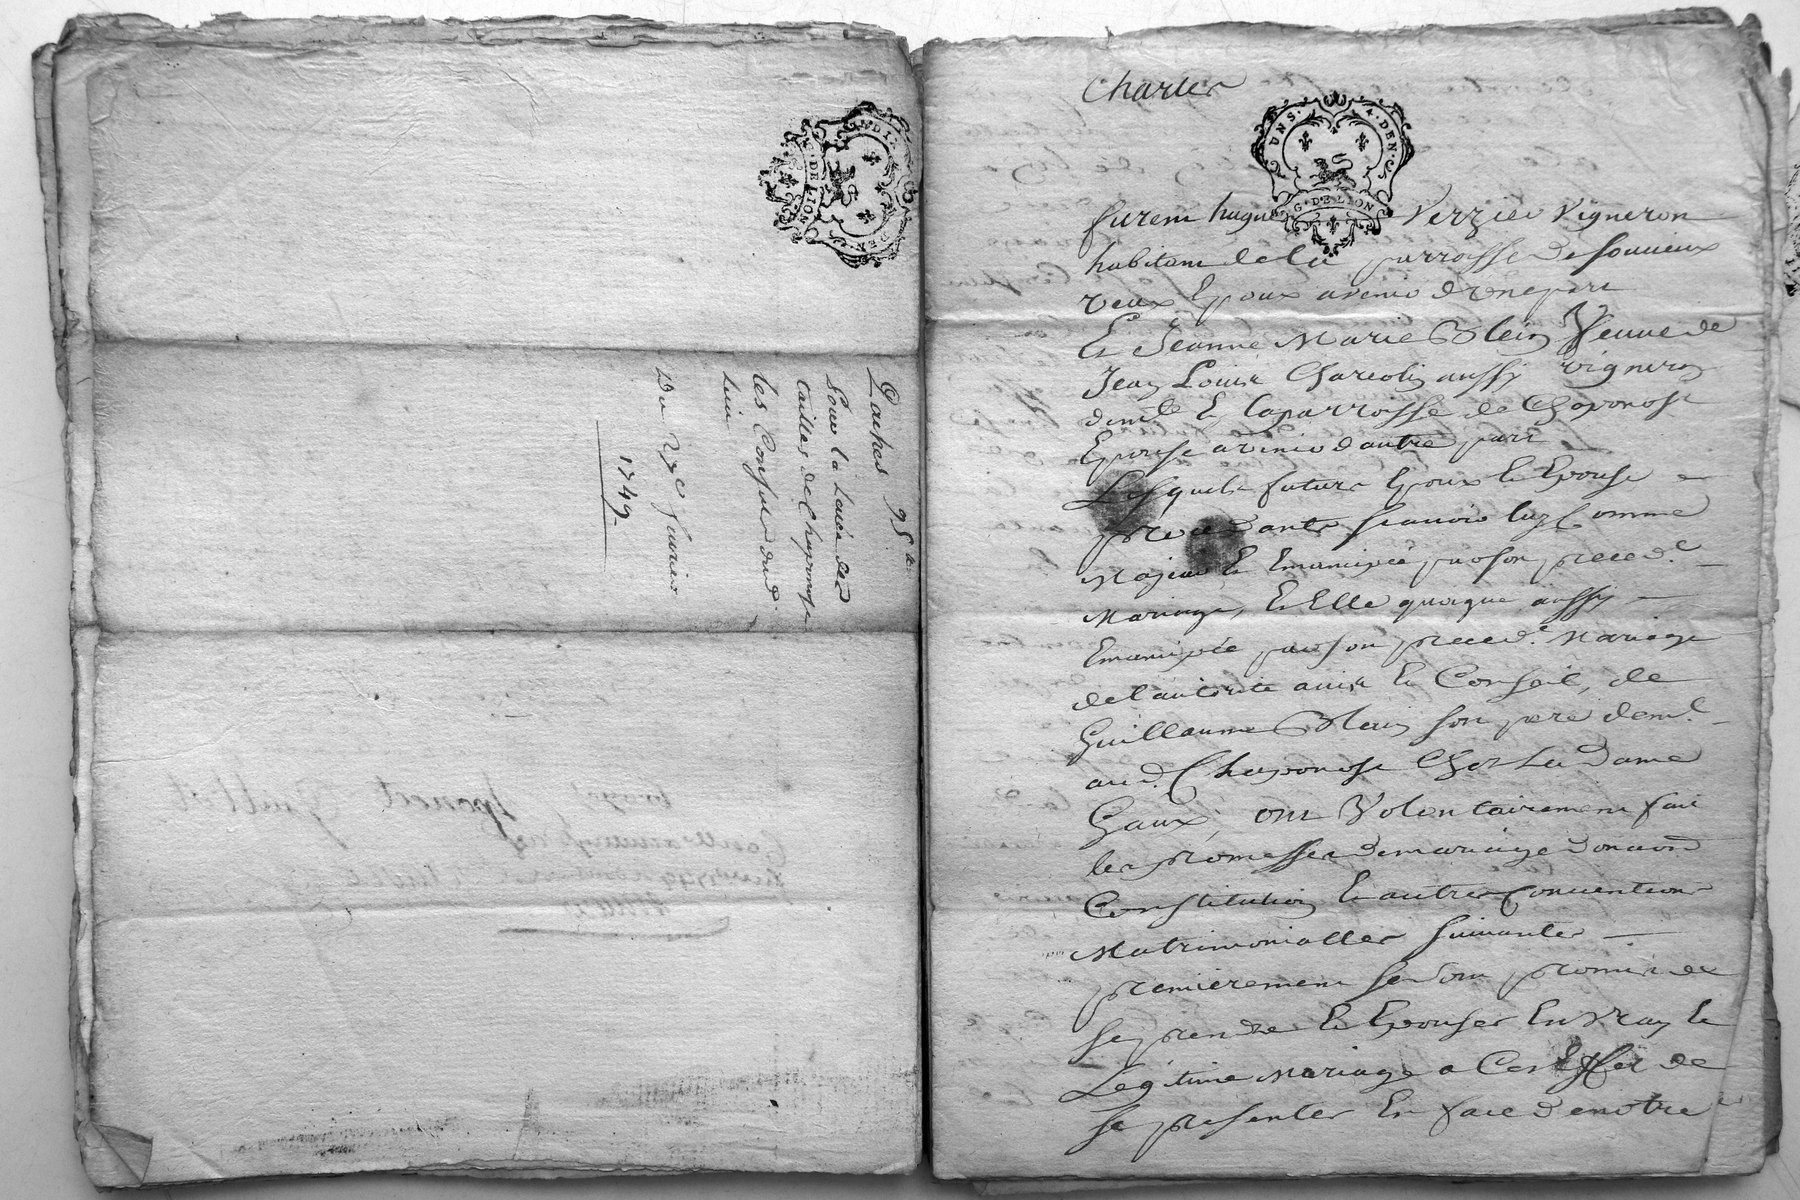 Paches 95lt
Pour la Levée des
tailles de Chaponost
les Consuls dud
Lieu
Du 27e fevrier
1749
INDIV
G DE LION
DEN
Charles
UN S. 4. DEN
G. DE LION
furent hugue Verzieu Vigneron
habitant de la parroisse de Soucieux
veux Epoux avenir d'une part
Et Jeanne Marie Blein Veuve de
Jean Louis Charcotin aussy vigneron
demt. En la parroisse de Chaponost
Epouse avenir d'autre part
Lesquels futurs Epoux le Epouse
procedants scauoir luy Comme
Majeur Et Emancipé par son preced.t
Mariage, Et Elle quoique aussy
Emancipée par son preced.t Mariage
de l'autorité avis Et Conseil, de
Guillaume Blein son pere demt.
aud. Chaponost Chez La Dame
Gaux, ont Volontairement fait
les promesses de mariage donation
Constitution Et autres Conventions
Matrimonialles suivantes
premierement se sont promis de
se prendre Et Epouser En vray Et
Legitime Mariage a Cest Effet de
se presenter En face de notre